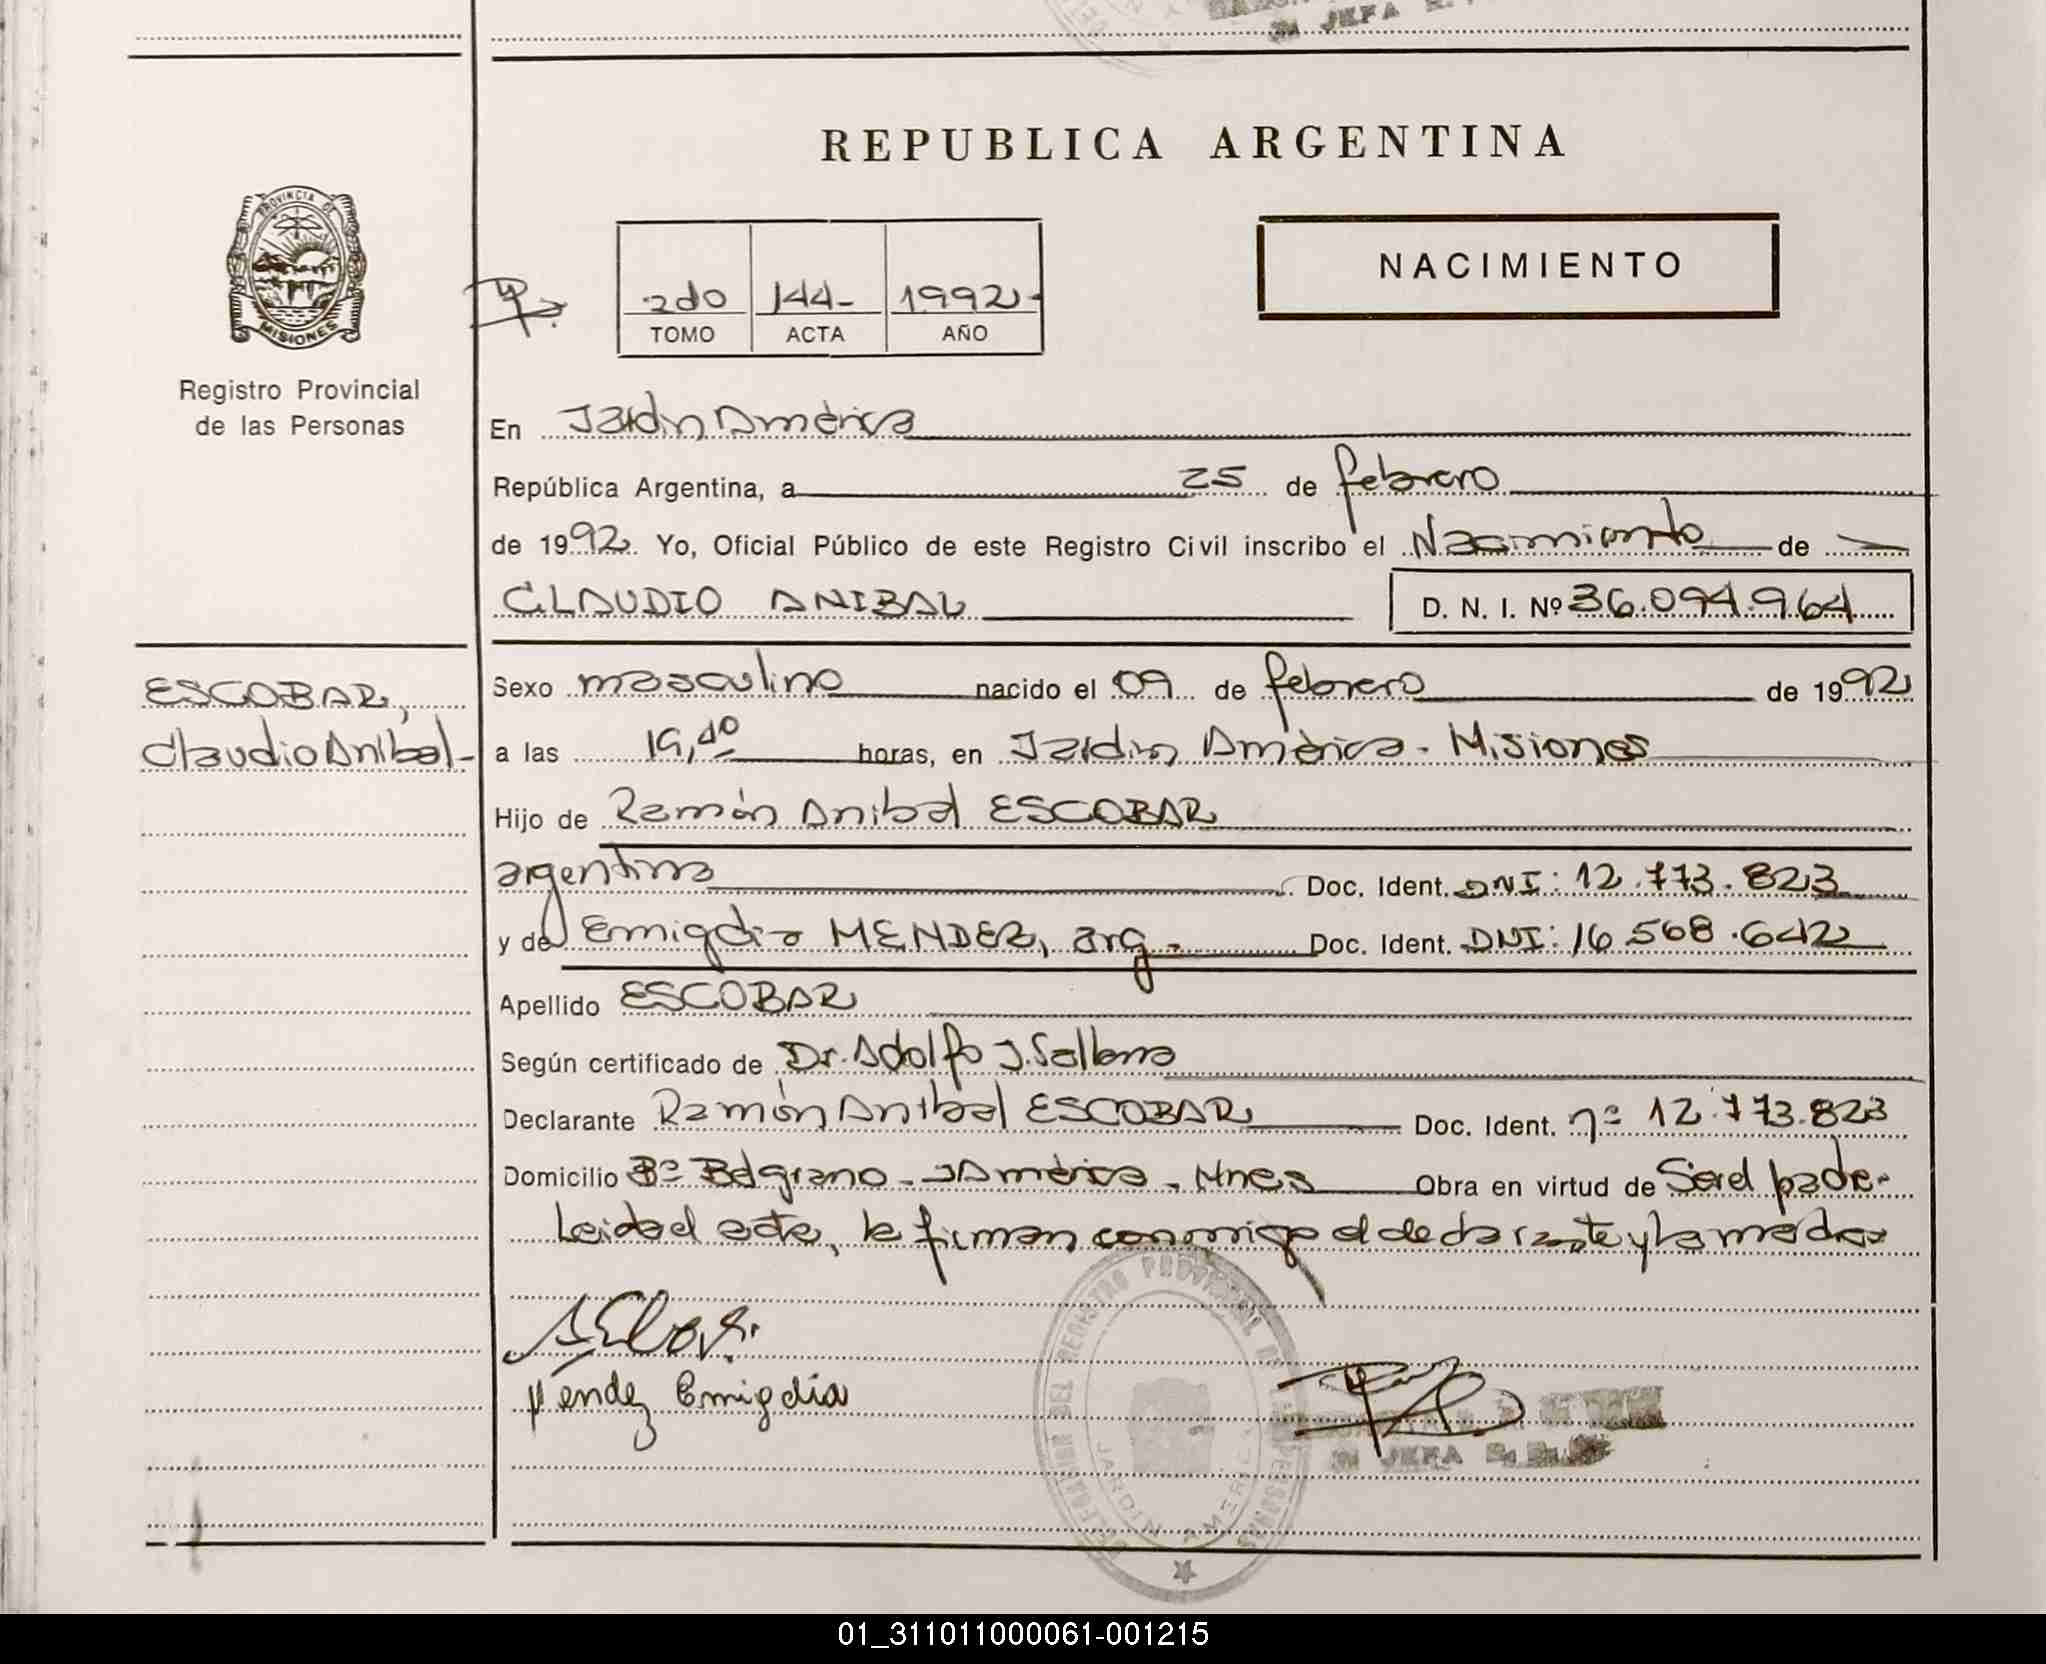 JEFA
REPUBLICA ARGENTINA
PROVINCIA DE
MISIONES
Registro Provincial
de las Personas
2do 144- 1992-
TOMO ACTA AÑO
NACIMIENTO
En Jardin América
República Argentina, a 25 de febrero
de 1992 Yo, Oficial Público de este Registro Civil inscribo el Nacimiento de
CLAUDIO ANIBAL D. N. I. Nº 36.094.964
ESCOBAR,
Claudio Anibal-
Sexo masculino nacido el 09 de febrero de 1992
a las 19,40 horas, en Jardin América - Misiones
Hijo de Ramón Anibal ESCOBAR
argentino Doc. Ident. DNI: 12.773.823
y de Emigdia MENDEZ, arg. Doc. Ident. DNI: 16.568.642
Apellido ESCOBAR
Según certificado de Dr. Adolfo J.
Declarante Ramón Anibal ESCOBAR Doc. Ident. nº 12.773.823
Domicilio Bº Belgrano - J América - Mnes Obra en virtud de Ser el padre.-
Leida el acta, la firman conmigo el declarante y la madre
Mendez Emigdia
DELEGACION DEL REGISTRO PROVINCIAL DE LAS PERSONAS
JARDIN AMERICA
JEFA
01_311011000061-001215